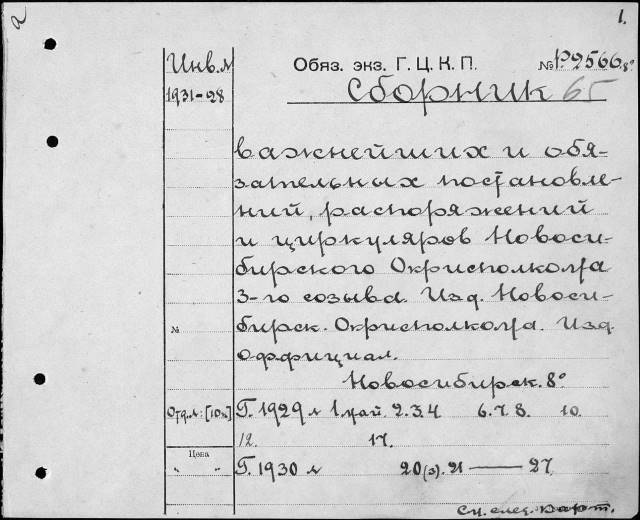 1.
Инв. №
1931-28
Обяз. экз. Г. Ц. К. П.
№ Р2566 8°
Сборник 65
важнейших и обя-
зательных постановле-
ний, распоряжений
и циркуляров Новоси-
бирского Окрисполкома
3-го созыва. Изд. Новоси-
№ бирск. Окрисполкома. Изд.
оффициал.
Новосибирск. 8°
Отд. №: [10к] Г. 1929 № 1 май. 2. 3. 4 6. 7. 8. 10.
12. 17.
Цена
" " Г. 1930 № 20(3). 21 —— 27
См. след. карт.